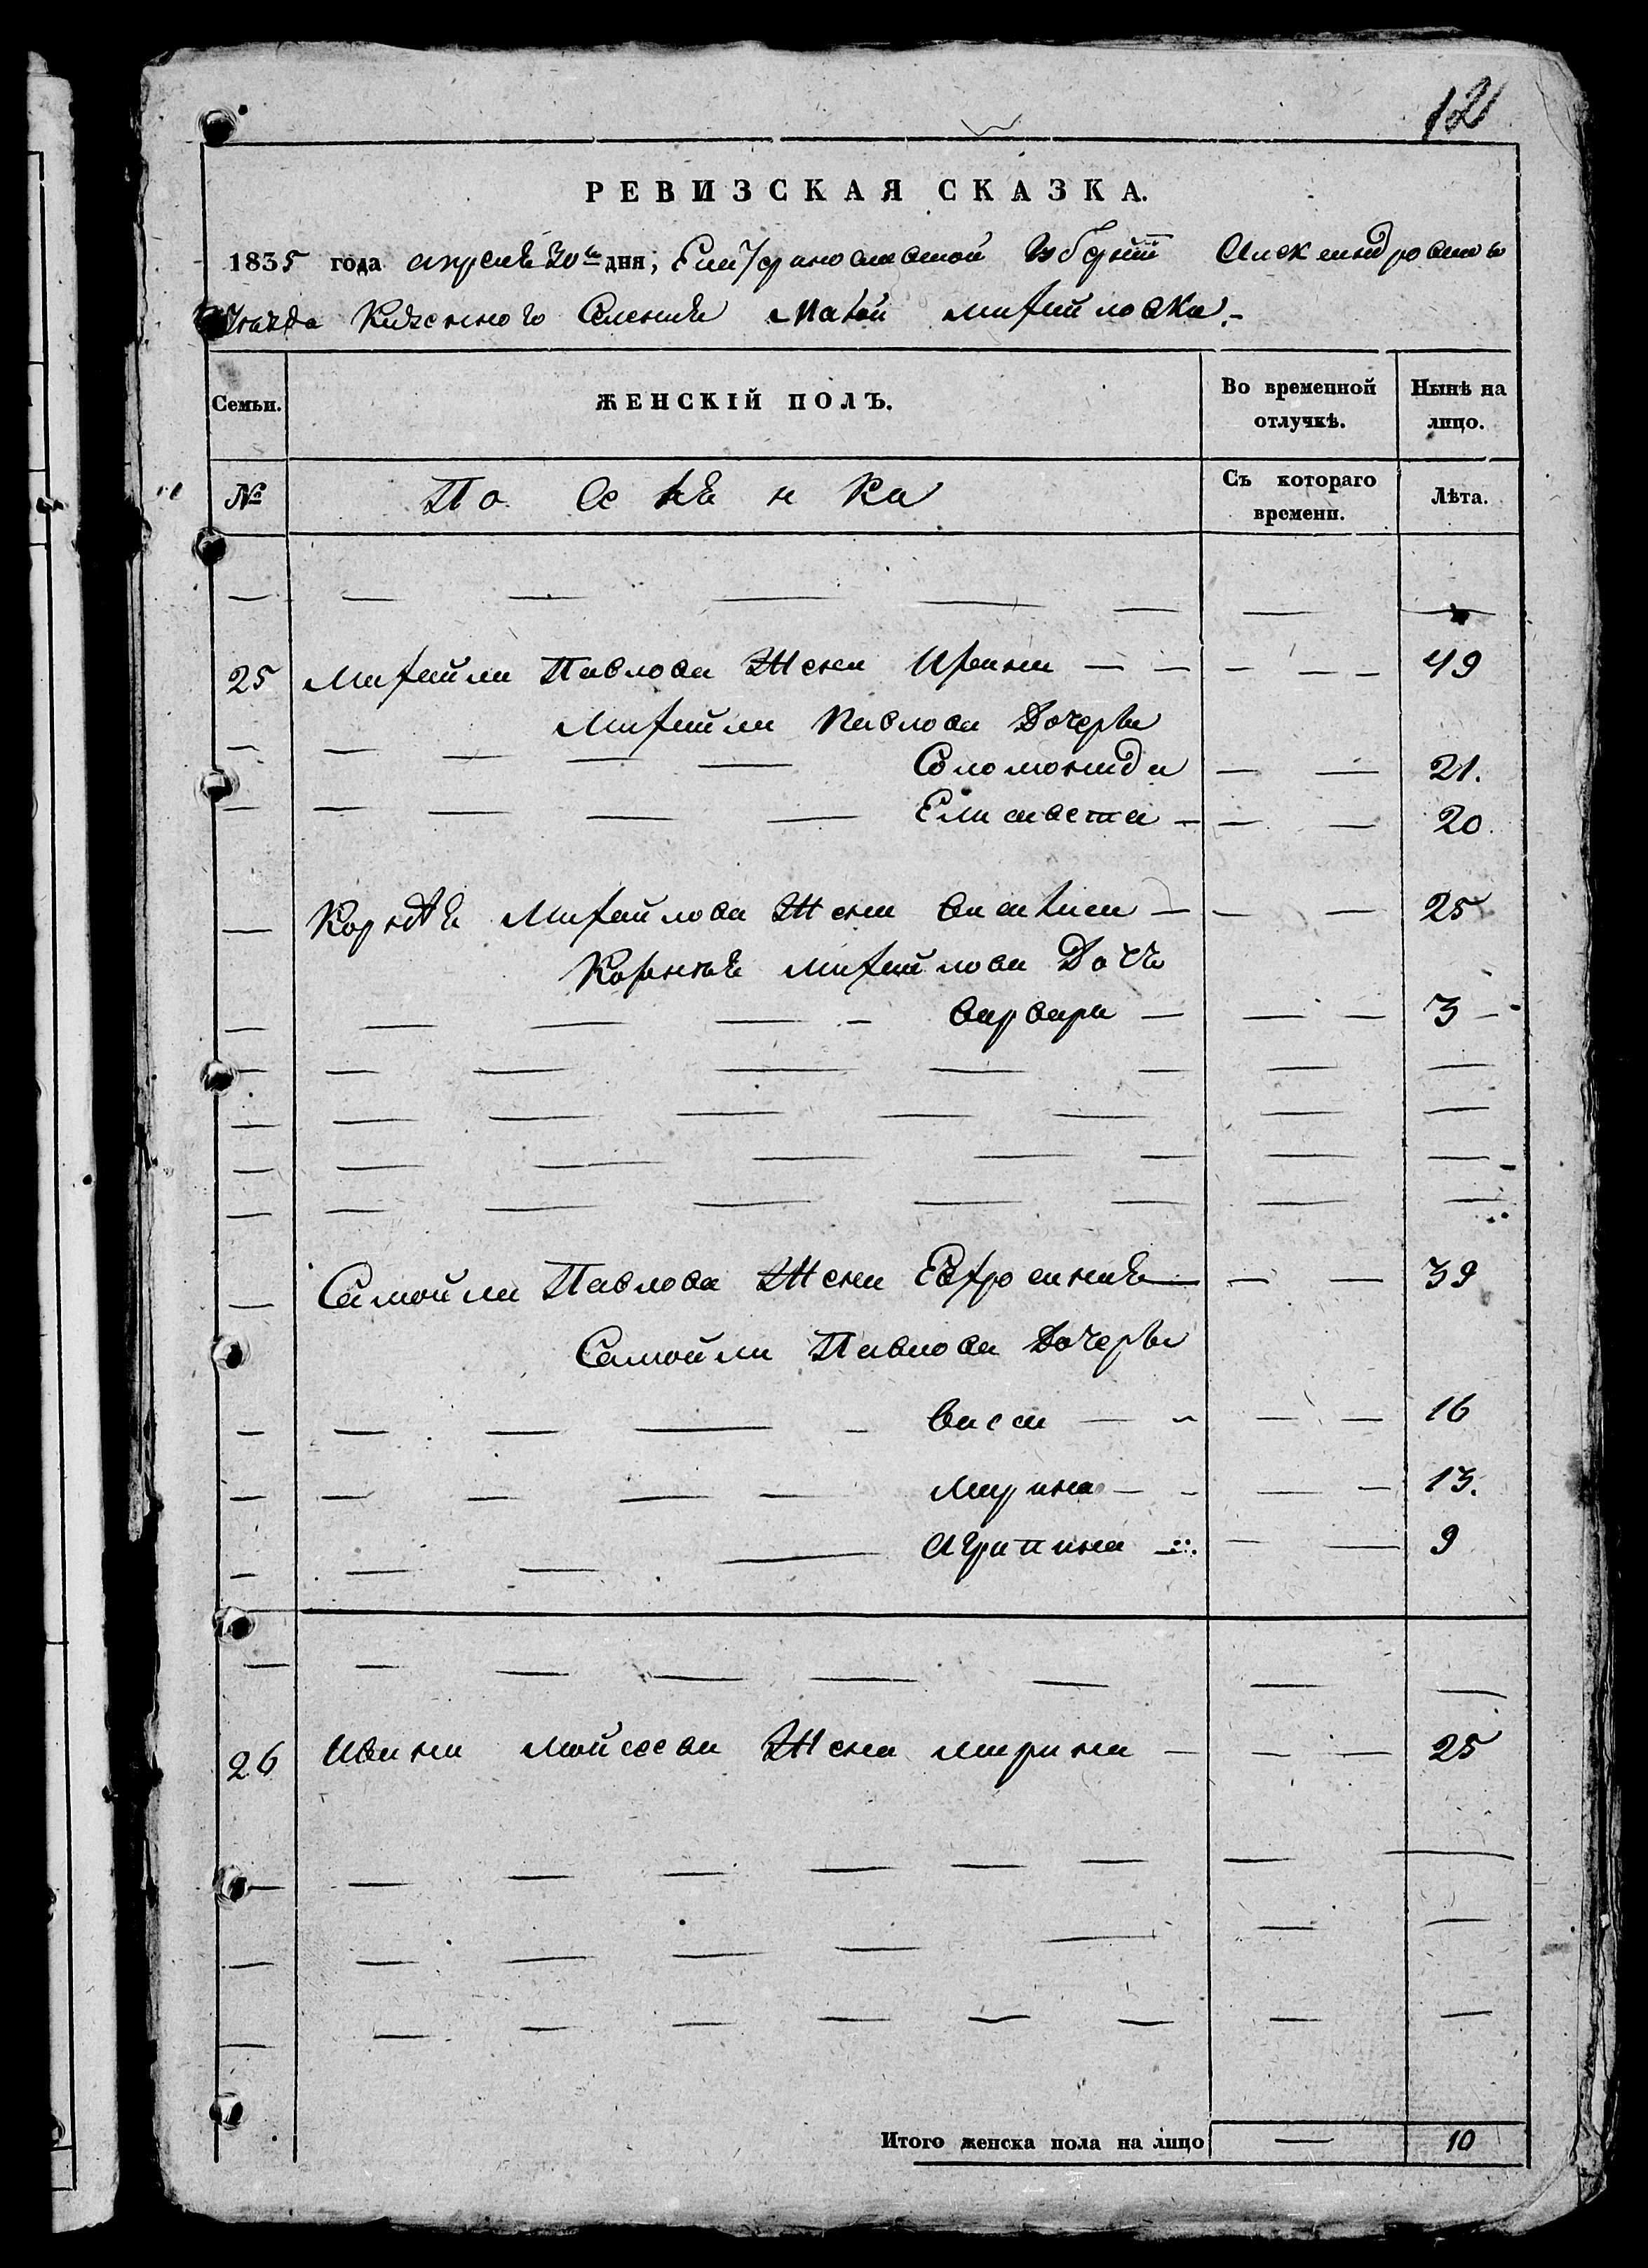 12
РЕВИЗСКАЯ СКАЗКА.
1835 года апреля 30го дня, Екатеринославской губернии Александровскаго
Уезда Казенного Селения Малой Михайловки.
Семьи. ЖЕНСКІЙ ПОЛЪ. Во временной отлучкѣ. Нынѣ на лицо.
№ Съ котораго времени. Лѣта.
25 Михайла Павлова Жена Ирина 49
Михайла Павлова Дочери
Соломонида 21.
Елисавета 20.
Корнея Михайлова Жена 25
Корнея Михайлова Дочь
Варвара 3
Самойла Павлова Жена Евфросиния 39
Самойла Павлова Дочери
Васса 16
Марина 13.
Агрипина 9
26 Ивана Мойсеева Жена Марина 25
Итого женска пола на лицо 10